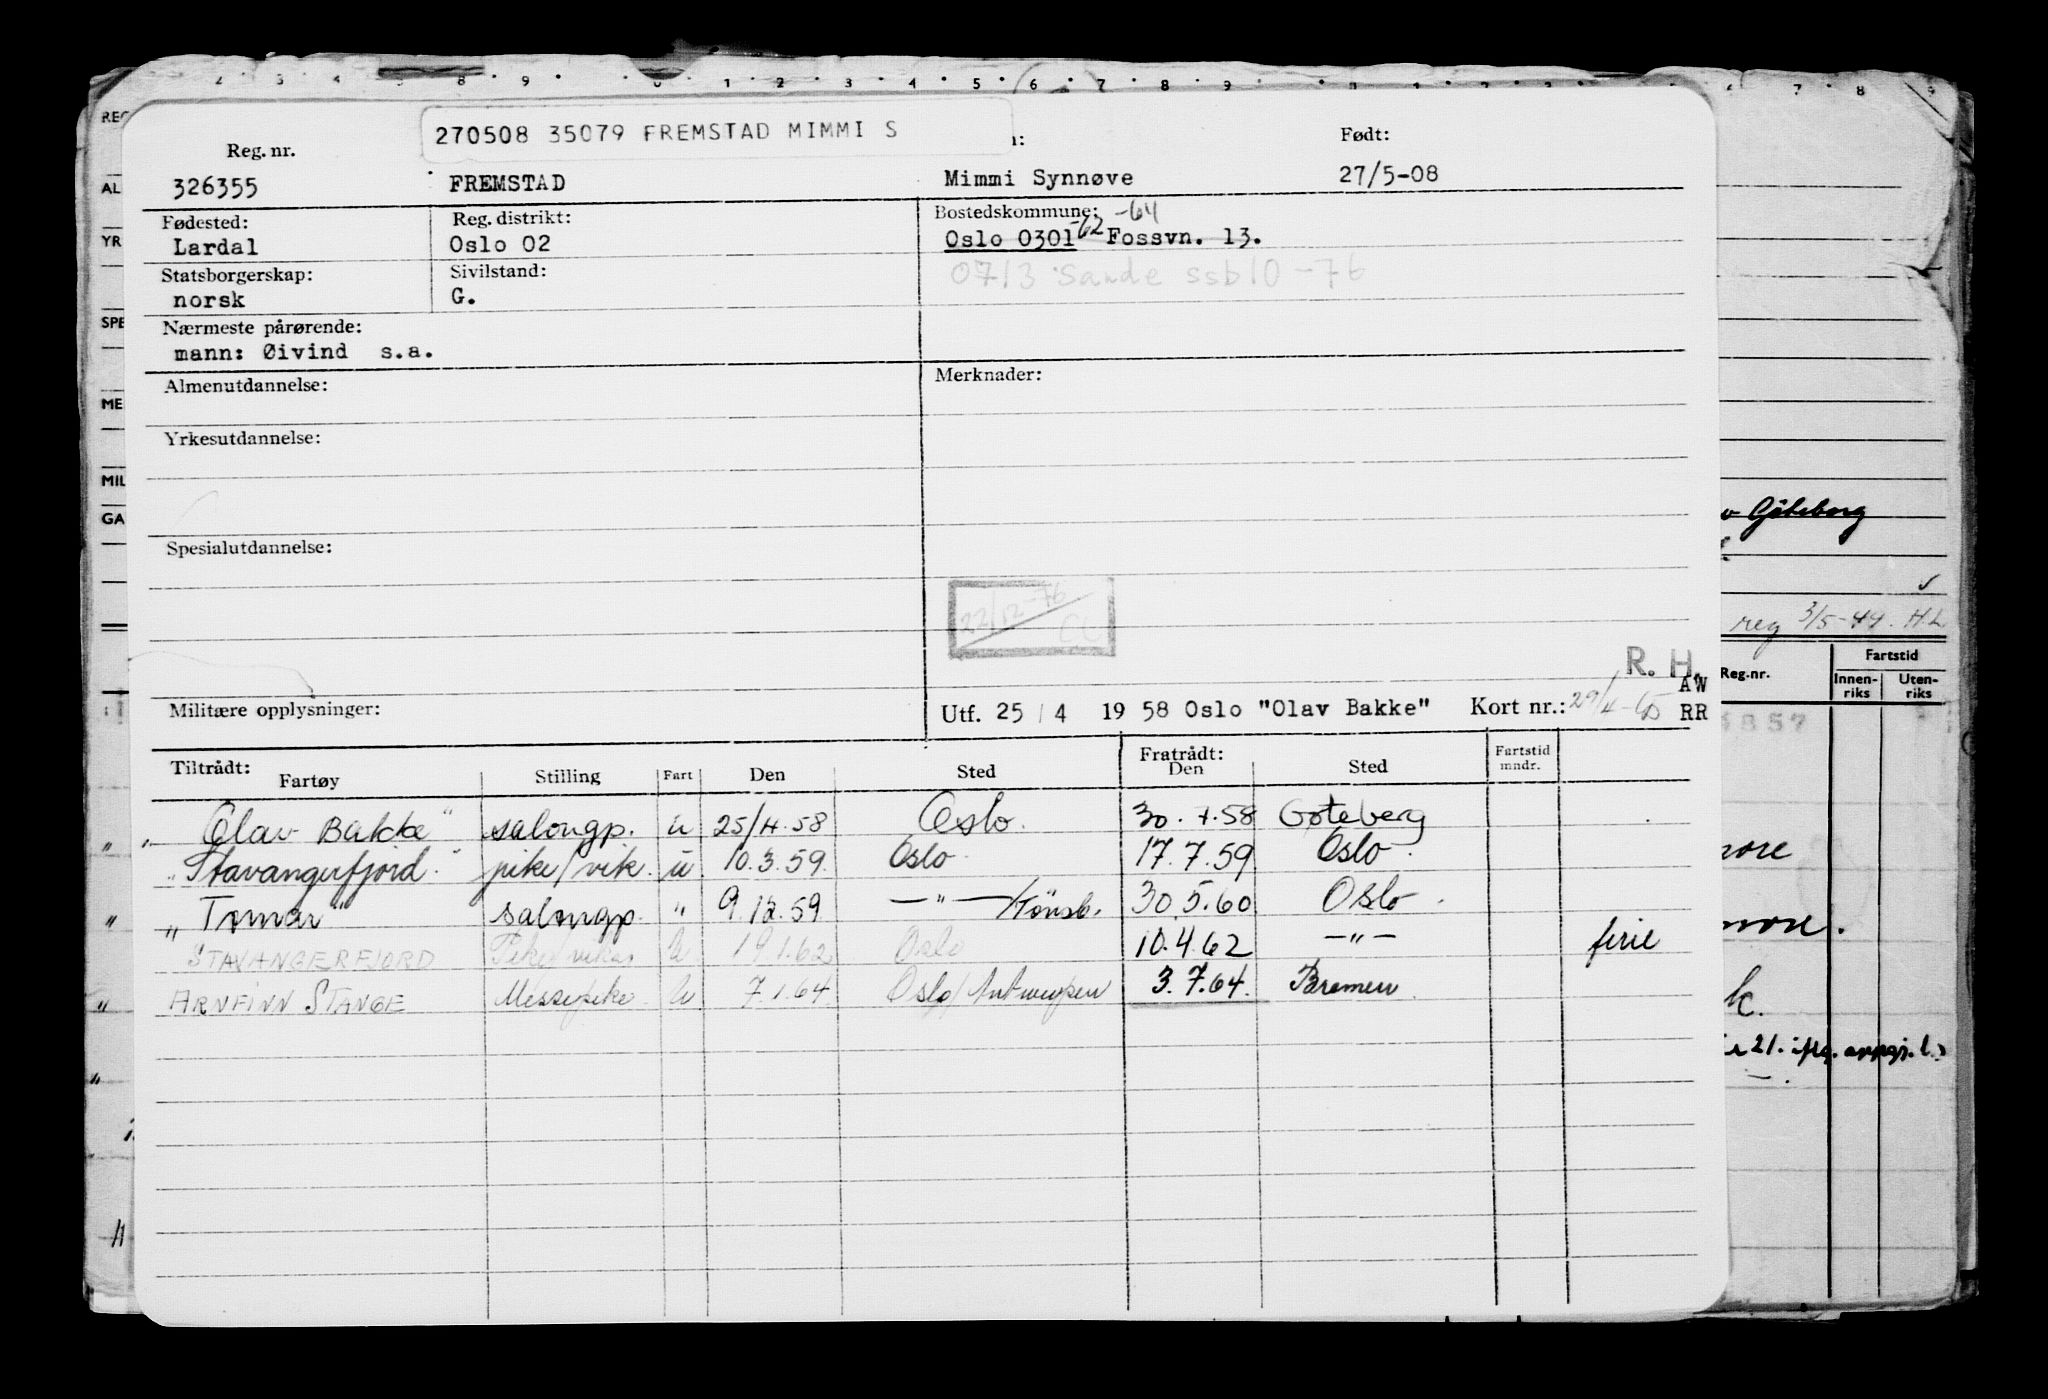 270508 35079 FREMSTAD MIMMI S
Reg. nr. Født:
326355 FREMSTAD Mimmi Synnøve 27/5-08
Fødested: Reg. distrikt: Bostedskommune: -64
Lardal Oslo 02 Oslo 0301 -62 Fossvn. 13.
Statsborgerskap: Sivilstand: 0713 Sande ssb10-76
norsk G.
Nærmeste pårørende:
mann: Øivind s.a.
Almenutdannelse: Merknader:
Yrkesutdannelse:
Spesialutdannelse:
22/12-76
R. H.
AW
Militære opplysninger: Utf. 25/4 1958 Oslo "Olav Bakke" Kort nr.: 29/4-65 RR
Tiltrådt: Fratrådt:
Fartøy Stilling Fart Den Sted Den Sted Fartstid mndr.
"Olav Bakke" salongp. u 25/4.58 Oslo. 30.7.58 Gøteberg
"Stavangerfjord" pike/vik. u 10.3.59 Oslo 17.7.59 Oslo.
"Tomar" salongp. " 9.12.59 —"—/Tönsb. 30.5.60 Oslo.
STAVANGERFJORD Pike/vikar U 19.1.62 Oslo 10.4.62 —"— ferie
ARNFINN STANGE Messepike U 7.1.64 Oslo/Antwerpen 3.7.64. Bremen
REG
AL
YR
SPE
ME
MIL
GA
Göteborg
reg 3/5-49. H.L
Reg.nr. Fartstid
Innen-riks Uten-riks